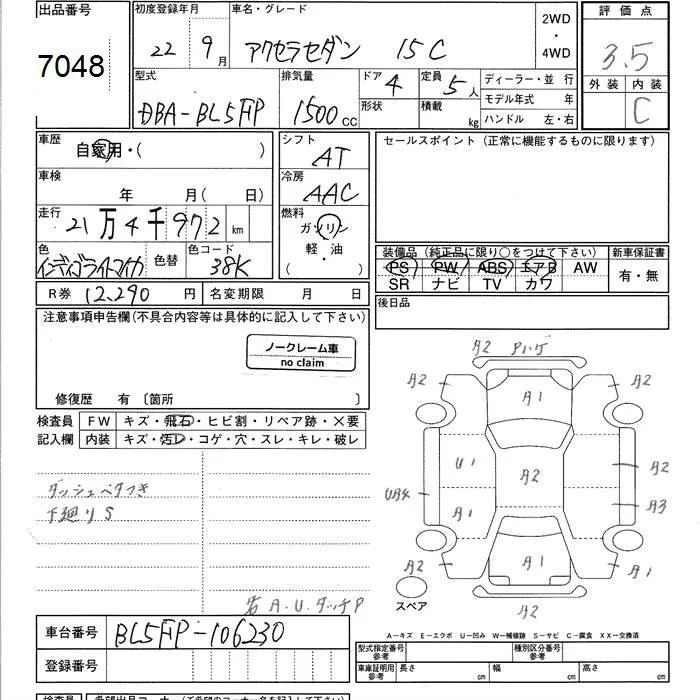 出品番号 初度登録年月 車名・グレード 2WD・4WD 評価点
7048 22年 9月 アクセラセダン 15C 3.5
型式 排気量 ドア 4 定員 5人 ディーラー・並行 外装 内装
DBA-BL5FP 1500cc 形状 積載 kg モデル年式 年 C
ハンドル 左・右
車歴 自家用・( ) シフト AT セールスポイント (正常に機能するものに限ります)
車検 年 月( 日) 冷房 AAC
走行 21万4千972km 燃料 ガソリン
軽・油
( )
色 インディゴライトマイカ 色替 色コード 38K
装備品 (純正品に限り○をつけて下さい) 新車保証書
PS PW ABS エアB AW 有・無
SR ナビ TV カワ
R券 12,290円 名変期限 月 日
後日品
注意事項申告欄(不具合内容等は具体的に記入して下さい)
ノークレーム車
no claim
修復歴 有 〔箇所 〕
検査員 FW キズ・飛石・ヒビ割・リペア跡・×要
記入欄 内装 キズ・汚レ・コゲ・穴・スレ・キレ・破レ
A2 Pハゲ
A2 A1 A2
U1 A2 A2
UA4 A1 A3
A2 A1 A1
A2
スペア
ダッシュベタつき
下廻りS
A.U.タッチP
A-キズ E-エクボ U-凹み W-補修跡 S-サビ C-腐食 XX-交換済
車台番号 BL5FP-106230
登録番号
型式指定番号 参考 種別区分番号 参考
車庫証明用 参考 長さ cm 幅 cm 高さ cm
検査員 希望出品コーナー (ご希望のコーナー名を記入して下さい)